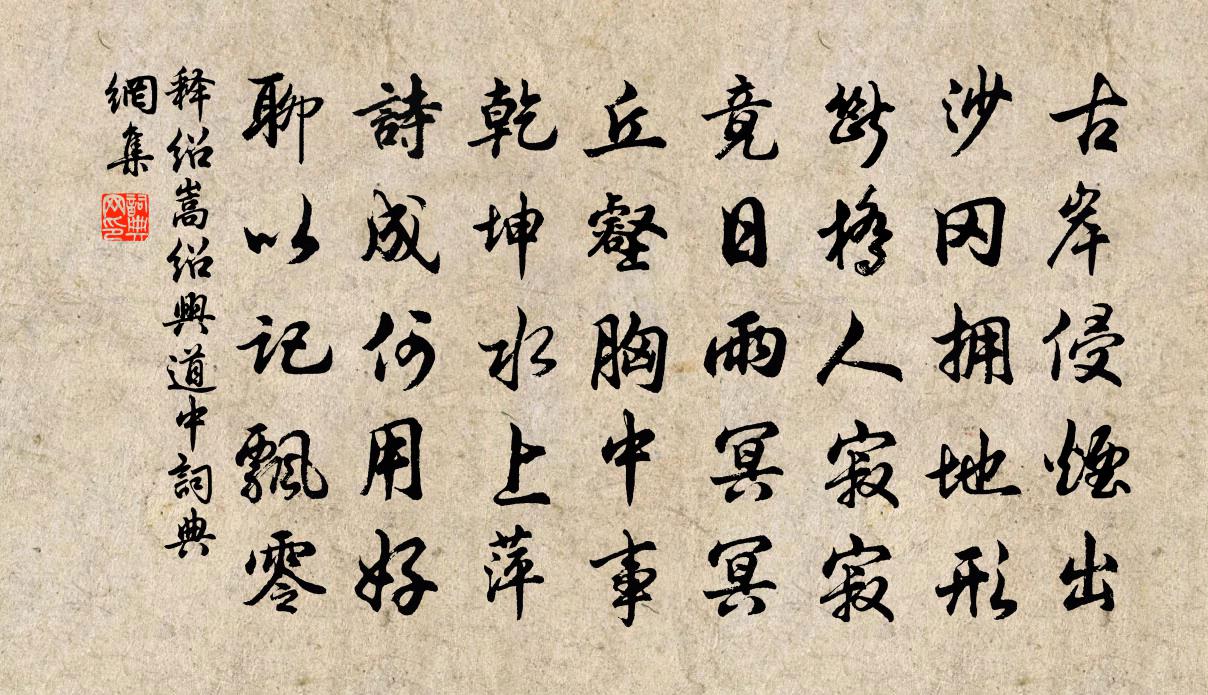 古岸侵煙出
沙冈拥地形
斷橋人寂寂
竟日雨冥冥
丘壑胸中事
乾坤水上萍
詩成何用好
聊以记飄零
释绍嵩绍興道中詞典
網集
詞典
网印